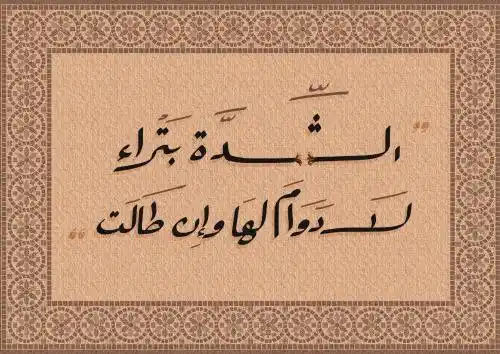 "الشَّدَّة بَتْراء
لَا دَوَامَ لهَا وإِن طَالَت"